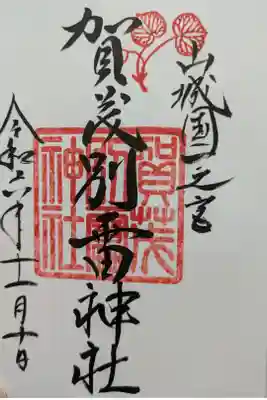 山城国一之宮
賀茂別雷神社
賀茂別雷神社
令和六年十一月十日